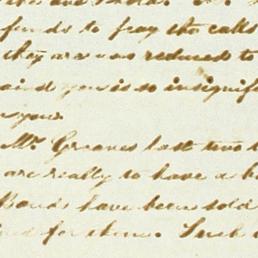 funds to pay the calls
they are now reduced to
and yours is so insignif
yours
Mr. Greaves last two
are really to have a b
Bonds have been sold
for them. Such